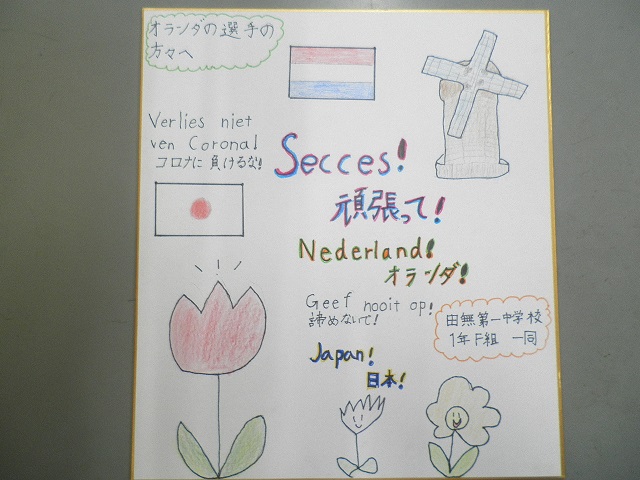 オランダの選手の
方々へ
Verlies niet
ven Corona!
コロナに負けるな!
Secces!
頑張って!
Nederland!
オランダ!
Geef nooit op!
諦めないで!
田無第一中学校
1年F組 一同
Japan!
日本!